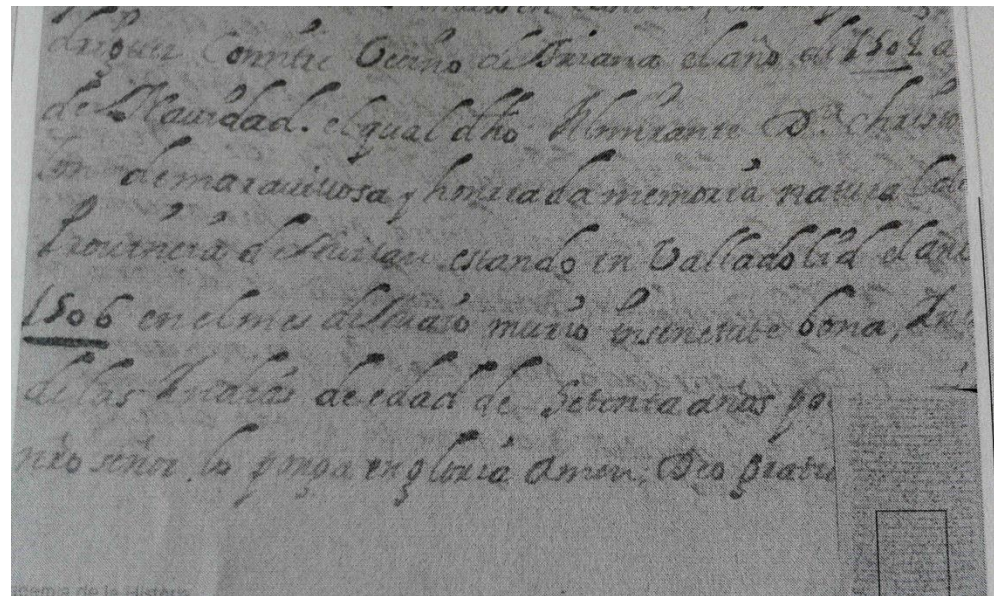 driguez Comitre Vecino de Triana el año de 1502 a
de Navidad. el qual dho Almirante Dn christo
lon de maravillosa y honrrada memoria natural de
Provincia de Milan estando en Valladolid el año
1506 en el mes de Maio murio in senetute bona,
de las Indias de edad de Setenta años
nro señor lo ponga en gloria Amen. Deo gratias
demia de la Historia